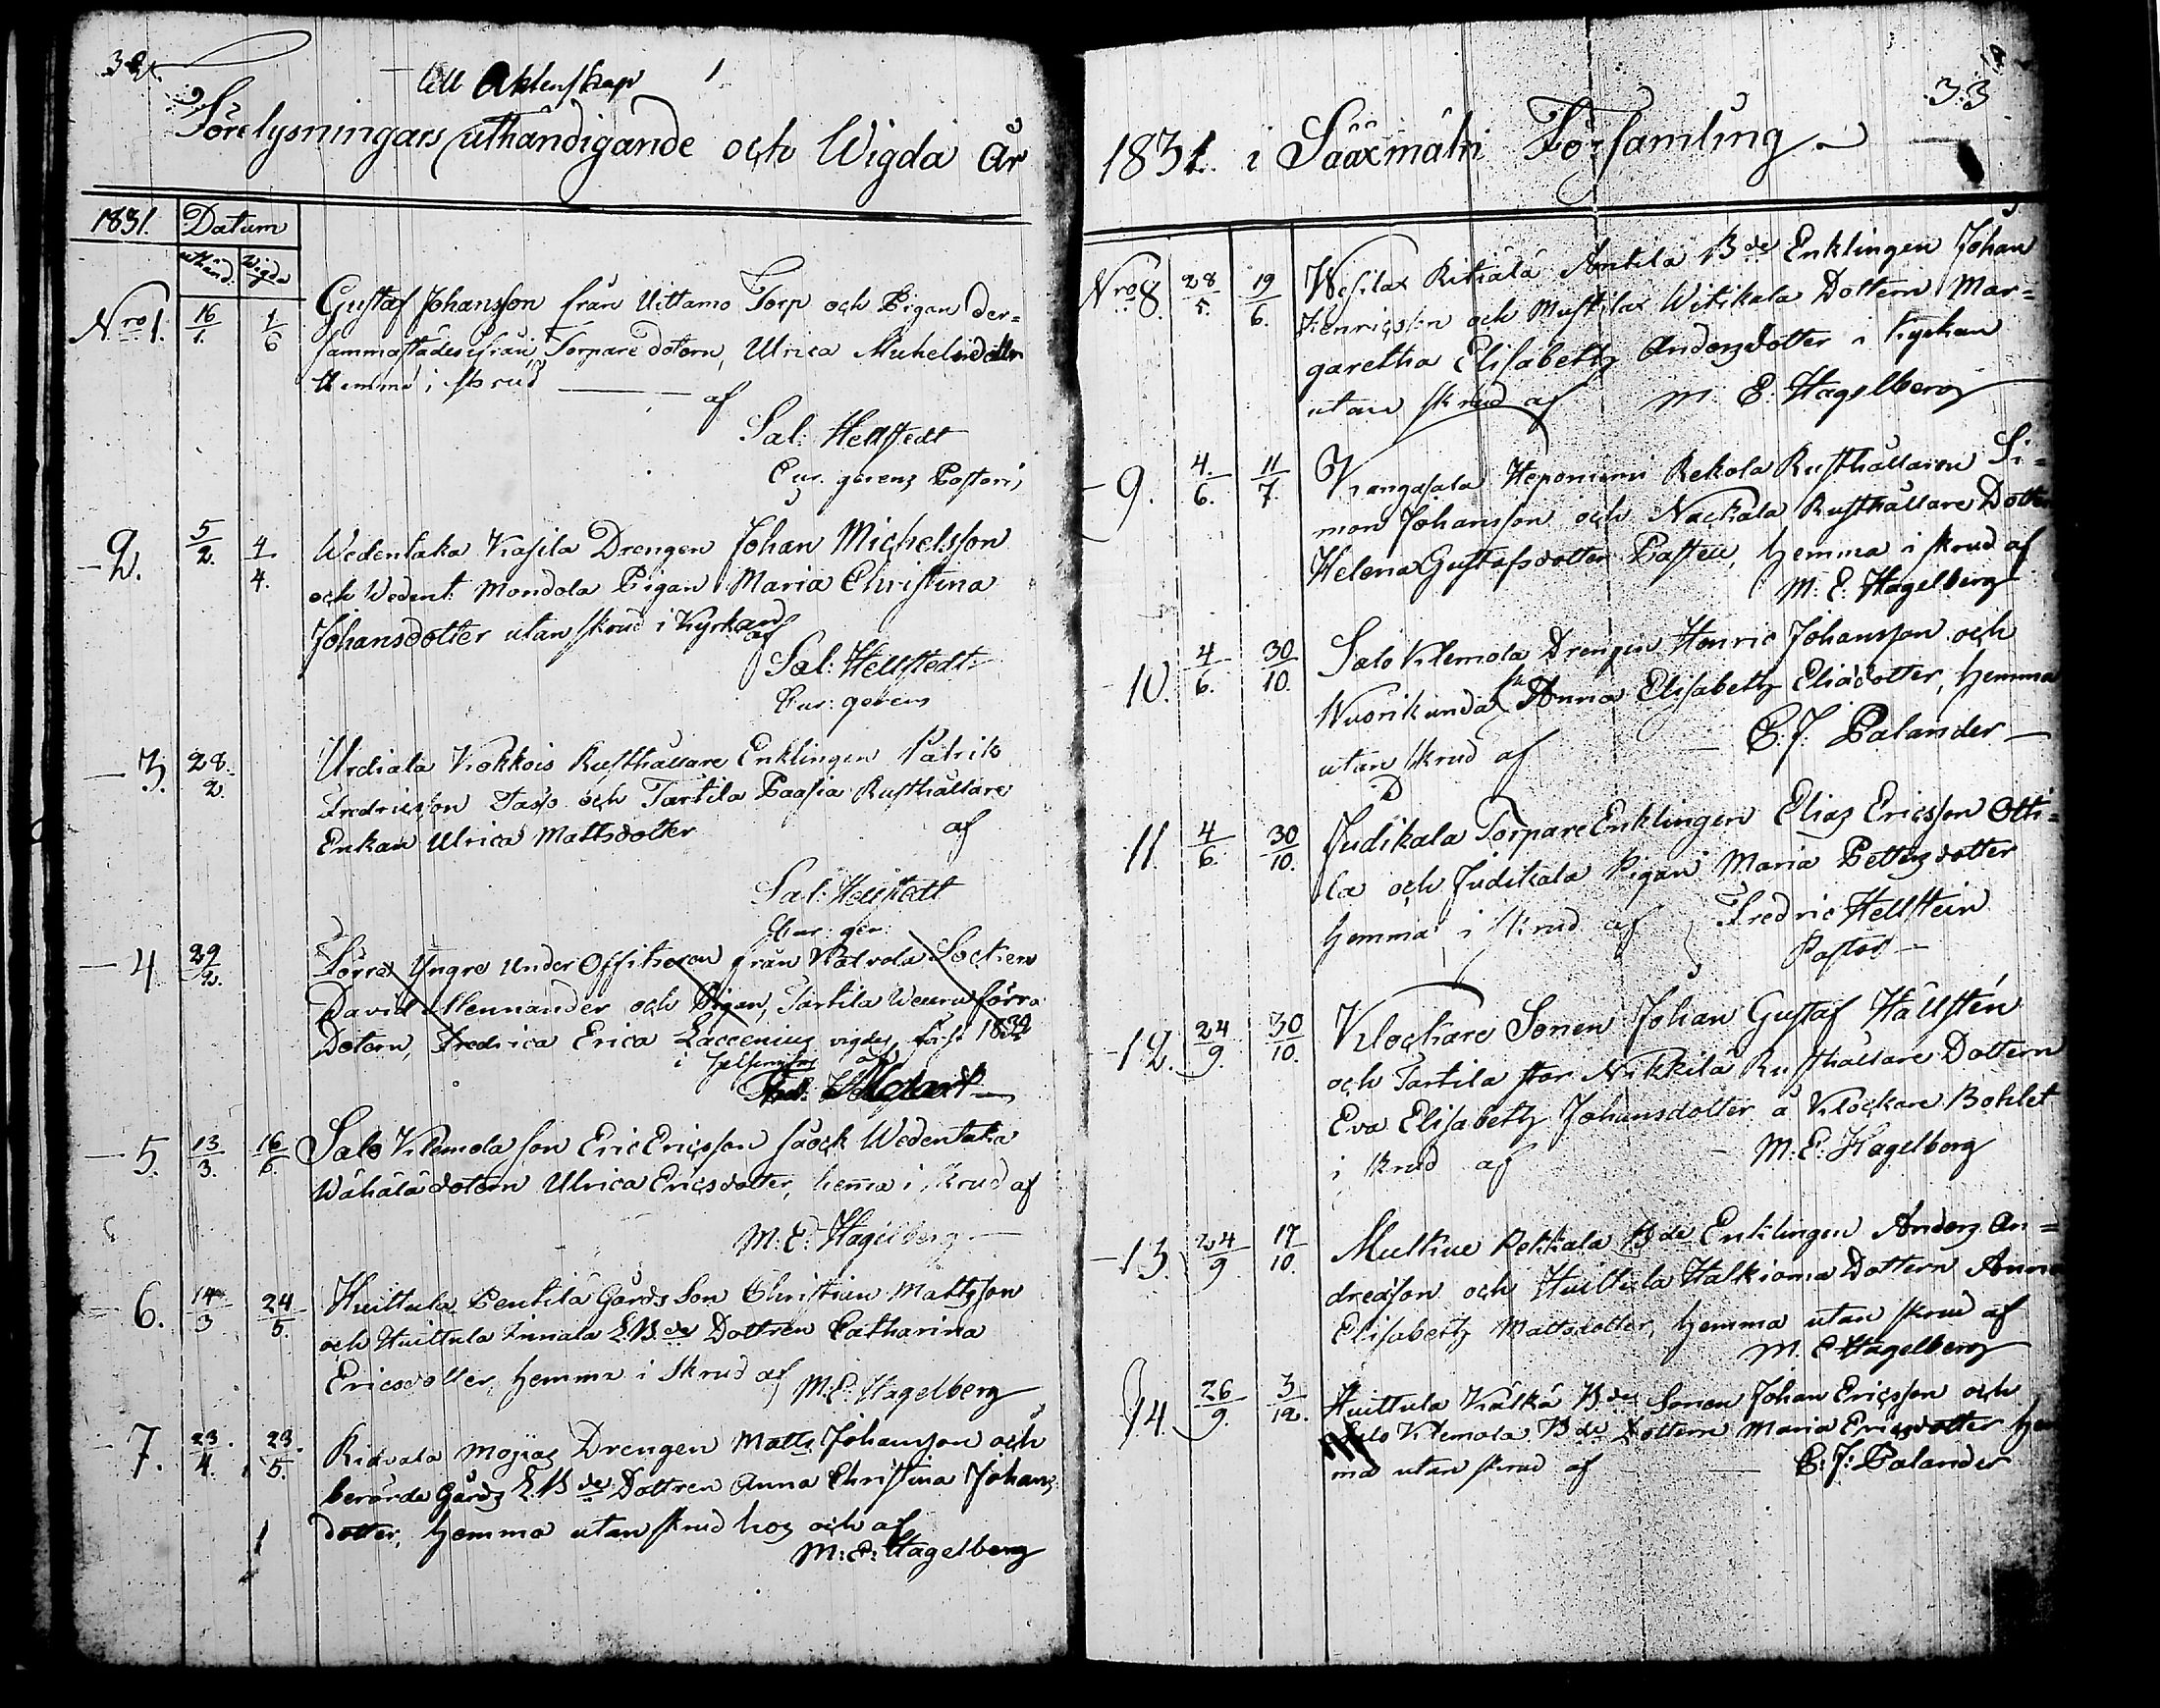 32.
till Äktenskap
Förelysningars uthändigande och Wigda År
1831. Datum
uthänd. Wigde
Nro 1. 16/1. 1/6 Gustaf Johansson från Uittamo Torp och Pigan der=
sammastädes ifrån, Torpare dotern, Ulrica Michelsdotter
Hemma i skrud — af
Sal: Hellstedt
Cur. gerens Pastori,
2. 5/2. 4/4. Wedentaka Kasila Drengen Johan Michelsson
och Wedent: Mondola Pigan Maria Christina
Johansdotter utan skrud i Kyrkan
af
Sal: Hellstedt
Cur: gerens
3. 28/2. Urdiala Kokkois Rusthållare Enklingen Patrik
Fredricsson och Tarttila Paasia Rusthållare
Enkan Ulrica Mattsdotter af
Sal: Hellstedt
Cur: ger:
4 29/2. Förre Yngre Under Officeren från Watvola Socken
David Mennander och Pigan, Tarttila förra
Dotern, Fredrica Erica Laccenius vigdes först 1832
i Helsingfors af
5. 13/3. 16/6. Salo Klemola son Eric Ericsson och Wedentaka
Wähälä dotern Ulrica Ericsdotter, hemma i skrud af
M: E: Hagelberg
6. 14/3 24/5. Huittula Pentila Gårds Son Christian Mattsson
och Huittula Einnala L.Bde Dottren Catharina
Ericsdotter, hemma i skrud af M: E: Hagelberg
7. 23/4. 23/5. Ridvala Mojias Drengen Matts Johansson och
berörde Gårds L.Bde Dottren Anna Christina Johans
dotter, hemma utan skrud hos och af
M: E: Hagelberg
33
1831. i Sääxmäki Församling
Nro 8. 28/5. 19/6. Wesilax Kitiälä Antila Bde Enklingen Johan
Henricsson och Mustilax Witikala Dottern Mar=
garetha Elisabeth Andersdotter i kyrkan
utan skrud af M. E: Hagelberg
9. 4/6. 11/7. Kangasala Heponiemi Rekola Rusthållaren Si=
mon Johansson och Nackala Rusthållare Dotter
Helena Gustafsdotter Pasteu, hemma i skrud af
M: E: Hagelberg
10. 4/6. 30/10. Salo Klemola Drengen Henric Johansson och
Wuorikunda Anna Elisabeth Eliædotter, hemma
utan skrud af — C. J. Palander
11. 4/6. 30/10. Judikala Torpare Enklingen Elias Ericsson Otti=
la och Judikala Pigan Maria Pettersdotter
hemma i skrud af Fredric Hellstein
Pastor
12. 24/9. 30/10. Klockare Sonen Johan Gustaf Hällstén
och Tarttila stor Nikkilä Rusthållare Dottern
Eva Elisabeth Johansdotter å Klockare Bohlet
i skrud af — M: E: Hagelberg
13. 24/9 17/10. Multiue Pekkala Bde Enklingen Anders An=
dreasson och Huittula Halkioma Dottern Anna
Elisabeth Mattsdotter, hemma utan skrud af
M. E Hagelberg
14. 26/9. 3/12. Huittula Kälkä Bde Sonen Johan Ericsson och
Salo Klemola Bde Dottern Maria Ericsdotter hem
ma utan skrud af — C: J: Palander